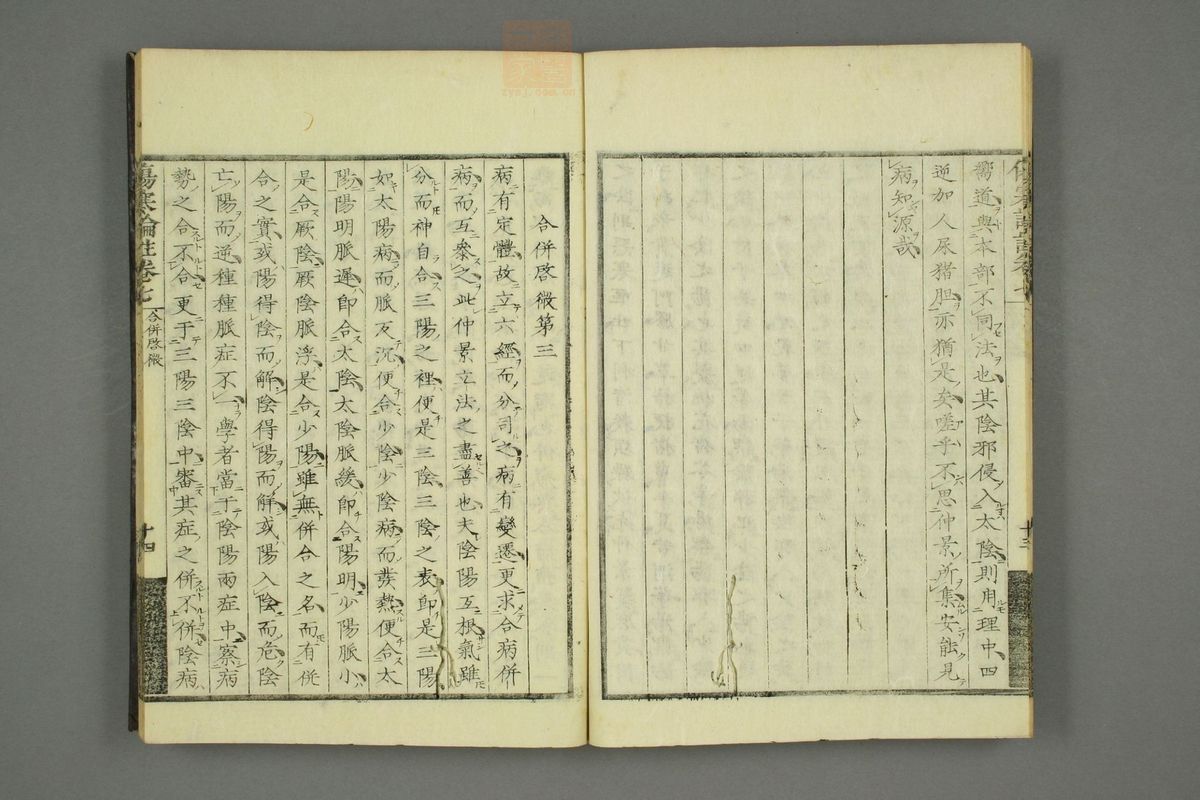 嚮道與本部不同法也其陰邪侵入太陰則用理中四
逆加人尿猪胆亦猶是矣嗟乎不思仲景所集安能見
病知源哉
十三
合併啓微第三
病有定體故立六經而分司之病有變遷更求合病併
病而互叅之此仲景立法之盡善也夫陰陽互根氣雖
分而神自合三陽之裡便是三陰三陰之表即是三陽
如太陽病而脈反沉便合少陰少陰病而發熱便合太
陽陽明脈遲即合太陰太陰脈緩即合陽明少陽脈小
是合厥陰厥陰脈浮是合少陽雖無併合之名而有併
合之實或陽得陰而解陰得陽而解或陽入陰而危陰
亡陽而逆種種脈症不一學者當于陰陽兩症中察病
勢之合不合更于三陽三陰中審其症之併不併陰病
傷寒論註卷七
合併啓微
十四
zysj.com.cn